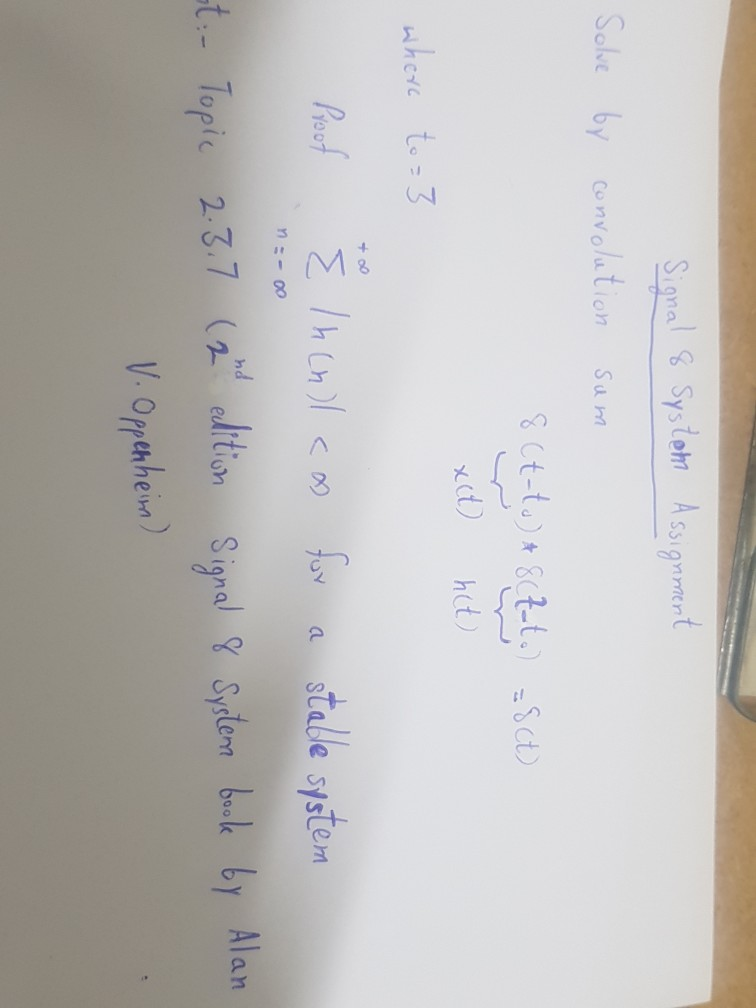 Signal & System Assignment
Solve by convolution sum
δ(t-t₀) * δ(t-t₀) = δ(t)
x(t) h(t)
where t₀ = 3
Proof +∞ Σ n=-∞ |h(n)| < ∞ for a stable system
t:- Topic 2.3.7 (2nd edition Signal & System book by Alan
V. Oppenheim)